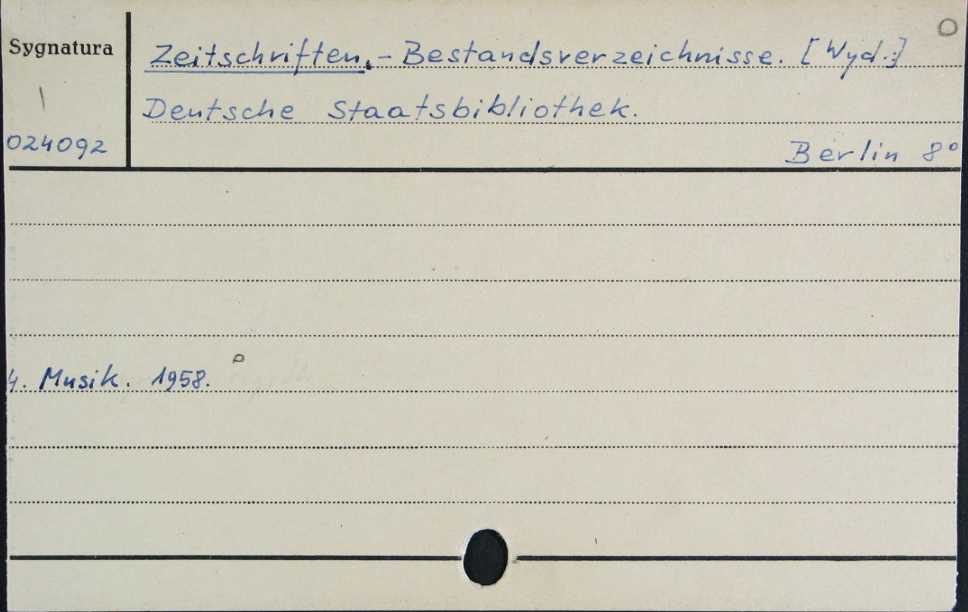 Sygnatura
Zeitschriften, - Bestandsverzeichnisse. [Wyd.:]
Deutsche Staatsbibliothek.
024092
Berlin 8°
4. Musik. 1958.